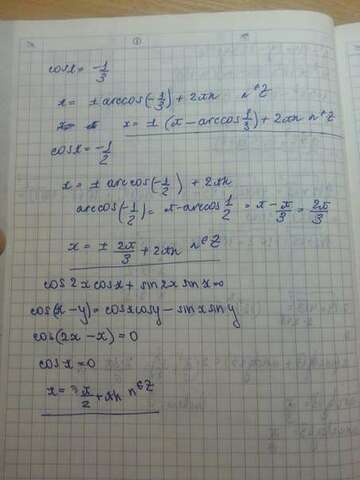 ①
cosx = -1/3
x = ± arccos(-1/3) + 2πn n ∈ Z
x = ± (π - arccos 1/3) + 2πn n ∈ Z
cosx = -1/2
x = ± arccos(-1/2) + 2πn
arccos(-1/2) = π - arccos 1/2 = π - π/3 = 2π/3
x = ± 2π/3 + 2πn n ∈ Z
cos2xcosx + sin2x sinx = 0
cos(x-y) = cosxcosy - sinxsiny
cos(2x - x) = 0
cosx = 0
x = π/2 + πn n ∈ Z